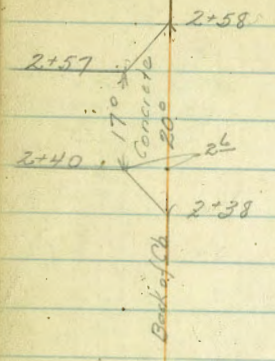 2+58
2+57
17⁰
Concrete
20⁰
2+40
2⁶
2+38
Back of Cb